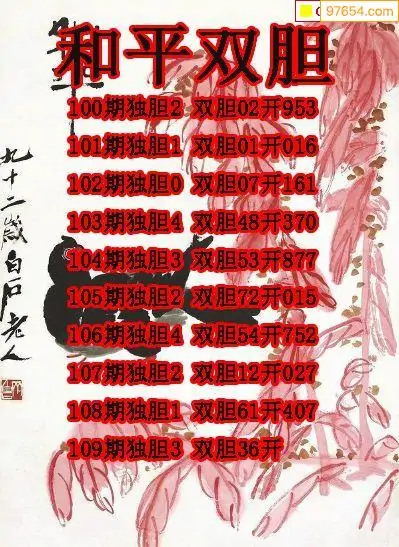 97654.com
和平双胆
100期独胆2 双胆02开953
101期独胆1 双胆01开016
102期独胆0 双胆07开161
103期独胆4 双胆48开370
104期独胆3 双胆53开877
105期独胆2 双胆72开015
106期独胆4 双胆54开752
107期独胆2 双胆12开027
108期独胆1 双胆61开407
109期独胆3 双胆36开
九十二岁白石老人